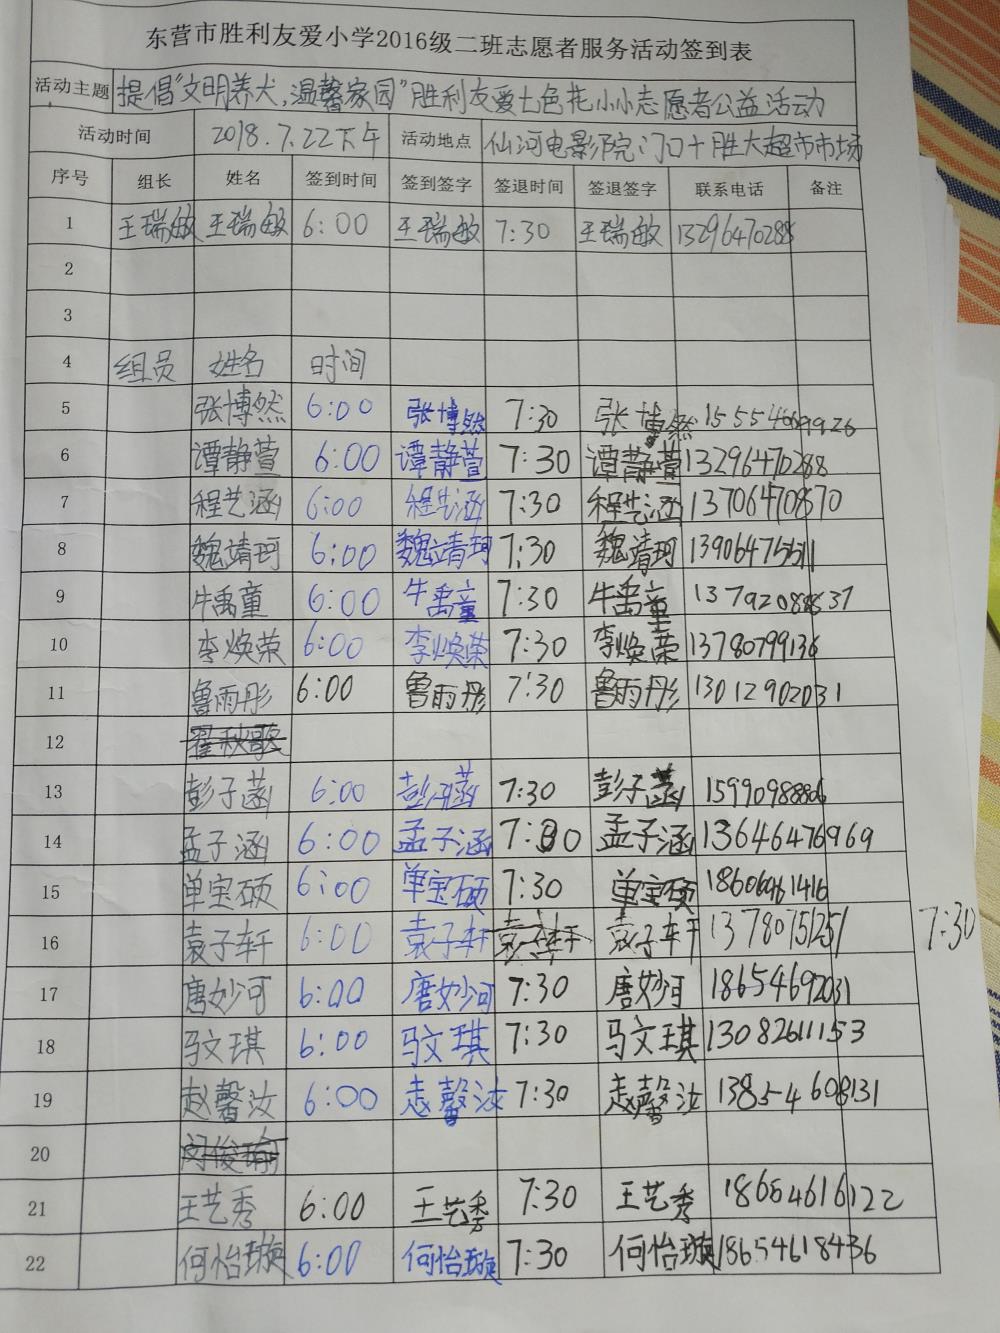 东营市胜利友爱小学2016级二班志愿者服务活动签到表
活动主题 提倡“文明养犬,温馨家园”胜利友爱七色花小小志愿者公益活动
活动时间 2018.7.22下午 活动地点 仙河电影院门口+胜大超市市场
序号 组长 姓名 签到时间 签到签字 签退时间 签退签字 联系电话 备注
1 王瑞敏 王瑞敏 6:00 王瑞敏 7:30 王瑞敏 13296470288
2
3
4 组员 姓名 时间
5 张博然 6:00 张博然 7:30 张博然
6 谭静萱 6:00 谭静萱 7:30 谭静萱 13296470288
7 程艺涵 6:00 程艺涵 7:30 程艺涵 13706470870
8 魏靖珂 6:00 魏靖珂 7:30 魏靖珂
9 牛禹童 6:00 牛禹童 7:30 牛禹童
10 李焕荣 6:00 李焕荣 7:30 李焕荣 13780799136
11 鲁雨彤 6:00 鲁雨彤 7:30 鲁雨彤 13012902031
12 翟秋歌
13 彭子菡 6:00 彭子菡 7:30 彭子菡 15990988806
14 孟子涵 6:00 孟子涵 7:30 孟子涵 13646476969
15 单宝硕 6:00 单宝硕 7:30 单宝硕
16 袁子轩 6:00 袁子轩 袁子轩 袁子轩 13780751251 7:30
17 唐妙河 6:00 唐妙河 7:30 唐妙河 18654692031
18 马文琪 6:00 马文琪 7:30 马文琪 13082611153
19 赵馨汝 6:00 赵馨汝 7:30 赵馨汝 13854608131
20
21 王艺秀 6:00 王艺秀 7:30 王艺秀 18654616122
22 何怡璇 6:00 何怡璇 7:30 何怡璇 18654618436